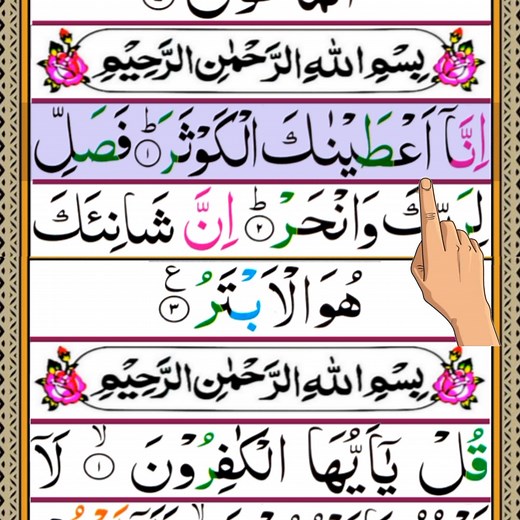 بِسْمِ اللهِ الرَّحْمٰنِ الرَّحِيْمِ
اِنَّاۤ اَعْطَيْنٰكَ الْكَوْثَرَؕ ۝١ فَصَلِّ
لِرَبِّكَ وَانْحَرْؕ ۝٢ اِنَّ شَانِئَكَ
هُوَ الْاَبْتَرُ ۝٣ ع
بِسْمِ اللهِ الرَّحْمٰنِ الرَّحِيْمِ
قُلْ يٰۤاَيُّهَا الْكٰفِرُوْنَۙ ۝١ لَاۤ